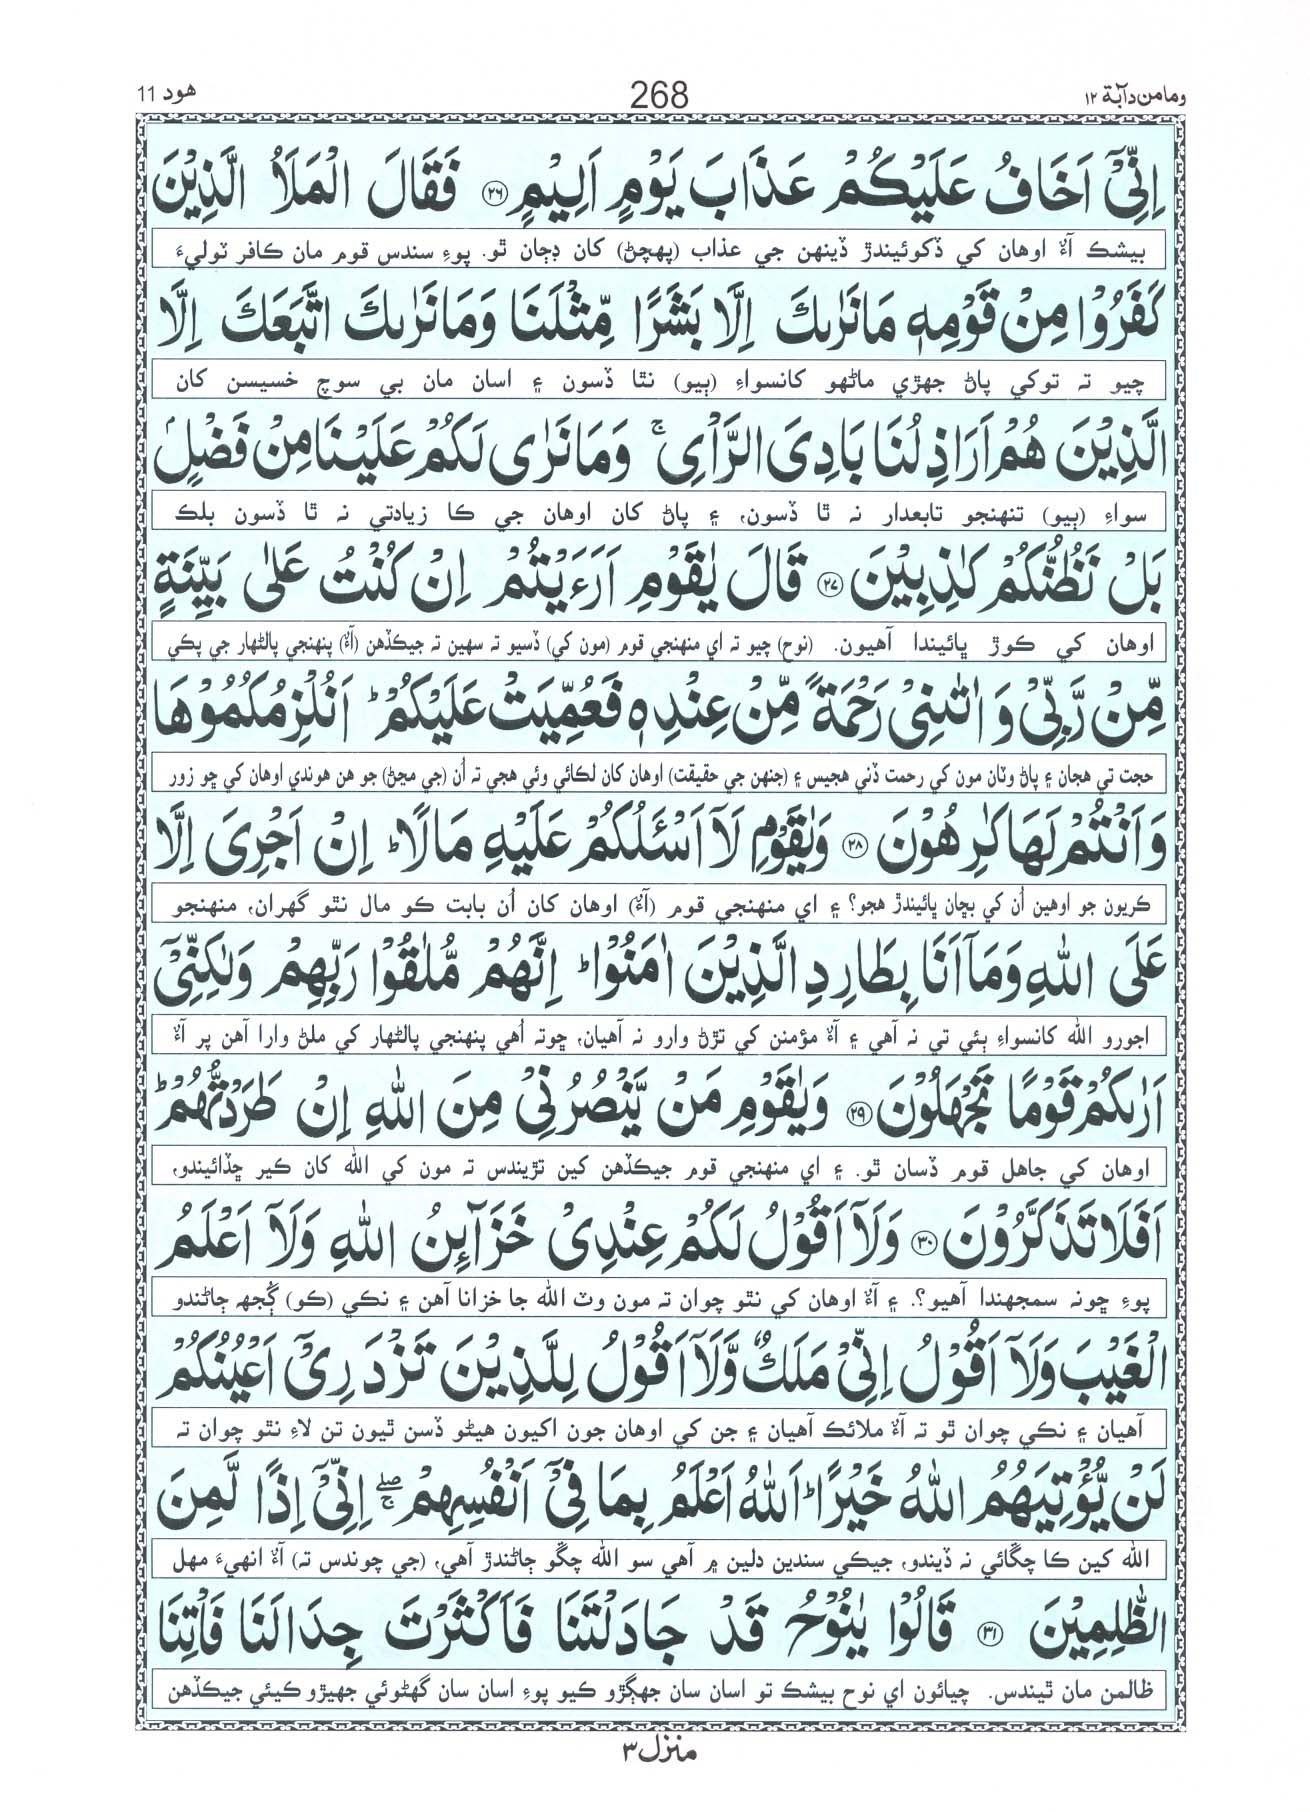 ومامن دآبة ۱۲
268
هود 11
اِنِّیْۤ اَخَافُ عَلَیْكُمْ عَذَابَ یَوْمٍ اَلِیْمٍ ۲۶ فَقَالَ الْمَلَاُ الَّذِیْنَ
بيشڪ آءٌ اوهان کي ڏکوئيندڙ ڏينهن جي عذاب (پهچڻ) کان ڊڄان ٿو. پوءِ سندس قوم مان ڪافر ٽوليءَ
كَفَرُوْا مِنْ قَوْمِهٖ مَا نَرٰىكَ اِلَّا بَشَرًا مِّثْلَنَا وَمَا نَرٰىكَ اتَّبَعَكَ اِلَّا
چيو ته توکي پاڻ جهڙي ماڻهو کانسواءِ (ٻيو) نٿا ڏسون ۽ اسان مان بي سوچ خسيسن کان
الَّذِیْنَ هُمْ اَرَاذِلُنَا بَادِیَ الرَّاْیِ ۚ وَمَا نَرٰی لَكُمْ عَلَیْنَا مِنْ فَضْلٍۭ
سواءِ (ٻيو) تنهنجو تابعدار نہ ٿا ڏسون، ۽ پاڻ کان اوهان جي ڪا زيادتي نہ ٿا ڏسون بلڪ
بَلْ نَظُنُّكُمْ كٰذِبِیْنَ ۲۷ قَالَ یٰقَوْمِ اَرَءَیْتُمْ اِنْ كُنْتُ عَلٰی بَیِّنَةٍ
اوهان کي ڪوڙ ڀائيندا آهيون. (نوح) چيو ته اي منهنجي قوم (مون کي) ڏسيو ته سهين ته جيڪڏهن (آءٌ) پنهنجي پالڻهار جي پڪي
مِّنْ رَّبِّیْ وَ اٰتٰىنِیْ رَحْمَةً مِّنْ عِنْدِهٖ فَعُمِّیَتْ عَلَیْكُمْ ؕ اَنُلْزِمُكُمُوْهَا
حجت تي هجان ۽ پاڻ وٽان مون کي رحمت ڏني هجيس ۽ (جنهن جي حقيقت) اوهان کان لڪائي وئي هجي ته اُن (جي مڃڻ) جو هن هوندي اوهان کي ڇو زور
وَ اَنْتُمْ لَهَا كٰرِهُوْنَ ۲۸ وَیٰقَوْمِ لَاۤ اَسْـَٔلُكُمْ عَلَیْهِ مَالًا ؕ اِنْ اَجْرِیَ اِلَّا
ڪريون جو اوهين اُن کي بڇان ڀائيندڙ هجو؟ ۽ اي منهنجي قوم (آءٌ) اوهان کان اُن بابت ڪو مال نٿو گهران، منهنجو
عَلَی اللّٰهِ وَمَاۤ اَنَا بِطَارِدِ الَّذِیْنَ اٰمَنُوْا ؕ اِنَّهُمْ مُّلٰقُوْا رَبِّهِمْ وَلٰكِنِّیْۤ
اجورو الله کانسواءِ ٻئي تي نہ آهي ۽ آءٌ مؤمنن کي تڙڻ وارو نہ آهيان، ڇوتہ اُهي پنهنجي پالڻهار کي ملڻ وارا آهن پر آءٌ
اَرٰىكُمْ قَوْمًا تَجْهَلُوْنَ ۲۹ وَیٰقَوْمِ مَنْ یَّنْصُرُنِیْ مِنَ اللّٰهِ اِنْ طَرَدْتُّهُمْ ؕ
اوهان کي جاهل قوم ڏسان ٿو. ۽ اي منهنجي قوم جيڪڏهن کين تڙيندس ته مون کي الله کان ڪير ڇڏائيندو،
اَفَلَا تَذَكَّرُوْنَ ۳۰ وَلَاۤ اَقُوْلُ لَكُمْ عِنْدِیْ خَزَآىِٕنُ اللّٰهِ وَلَاۤ اَعْلَمُ
پوءِ ڇونہ سمجهندا آهيو؟. ۽ آءٌ اوهان کي نٿو چوان ته مون وٽ الله جا خزانا آهن ۽ نڪي (ڪو) ڳُجهه ڄاڻندو
الْغَیْبَ وَلَاۤ اَقُوْلُ اِنِّیْ مَلَكٌ وَّلَاۤ اَقُوْلُ لِلَّذِیْنَ تَزْدَرِیْۤ اَعْیُنُكُمْ
آهيان ۽ نڪي چوان ٿو ته آءٌ ملائڪ آهيان ۽ جن کي اوهان جون اکيون هيڻو ڏسن ٿيون تن لاءِ نٿو چوان ته
لَنْ یُّؤْتِیَهُمُ اللّٰهُ خَیْرًا ؕ اَللّٰهُ اَعْلَمُ بِمَا فِیْۤ اَنْفُسِهِمْ ۖۚ اِنِّیْۤ اِذًا لَّمِنَ
الله کين ڪا چڱائي نہ ڏيندو، جيڪي سندين دلين ۾ آهي سو الله چڱو ڄاڻندڙ آهي، (جي چوندس ته) آءٌ انهيءَ مهل
الظّٰلِمِیْنَ ۳۱ قَالُوْا یٰنُوْحُ قَدْ جَادَلْتَنَا فَاَكْثَرْتَ جِدَالَنَا فَاْتِنَا
ظالمن مان ٿيندس. چيائون اي نوح بيشڪ تو اسان سان جهڳڙو ڪيو پوءِ اسان سان گهڻوئي جهيڙو ڪيئي جيڪڏهن
منزل ۳